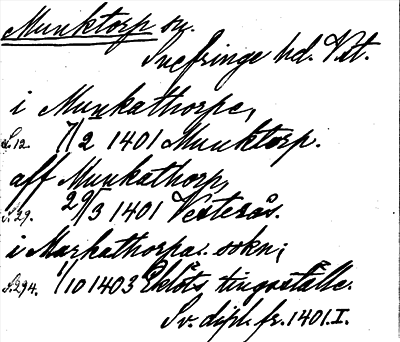 Munktorp sn.
Snefringe hd. Vstm.
i Munkathorpe,
S. 12. 7/2 1401 Munktorp.
aff Munkathorp,
S. 29. 29/3 1401 Vesterås.
i Markathorpa.. sokn;
S. 294. 1/10 1403 Eklöts tingsställe.
Sv. dipl. fr. 1401. I.